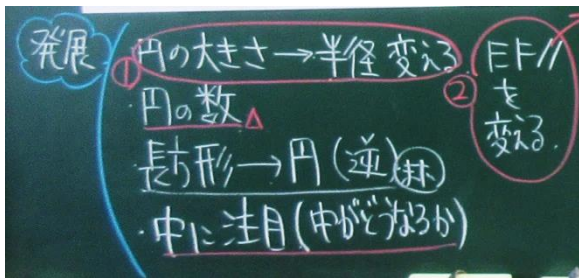 発展
①円の大きさ→半径変える
・円の数△
長方形→円(逆)
・中に注目(中がどうなるか)
②EF//
を
変える.